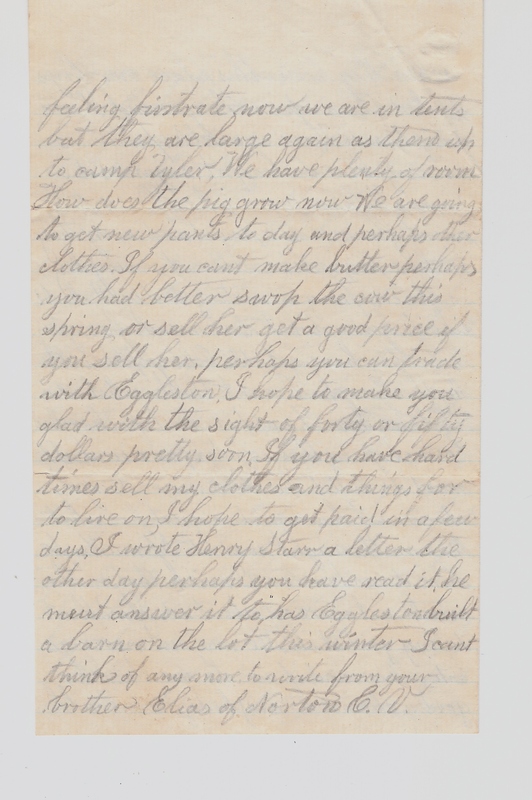 feeling firstrate now we are in tents
but they are large again as them up
to camp Tyler, We have plenty of room
How does the pig grow now We are going
to get new pants to day and perhaps other
clothes. If you cant make butter perhaps
you had better swop the cow this
spring or sell her get a good price if
you sell her. perhaps you can trade
with Eggleston, I hope to make you
glad with the sight of forty or fifty
dollars pretty soon If you have hard
times sell my clothes and things for
to live on, I hope to get paid in a few
days, I wrote Henry Starr a letter the
other day perhaps you have read it, he
must answer it to, has Eggleston built
a barn on the lot this winter I cant
think of any more to write from your
brother Elias of Norton E. V.